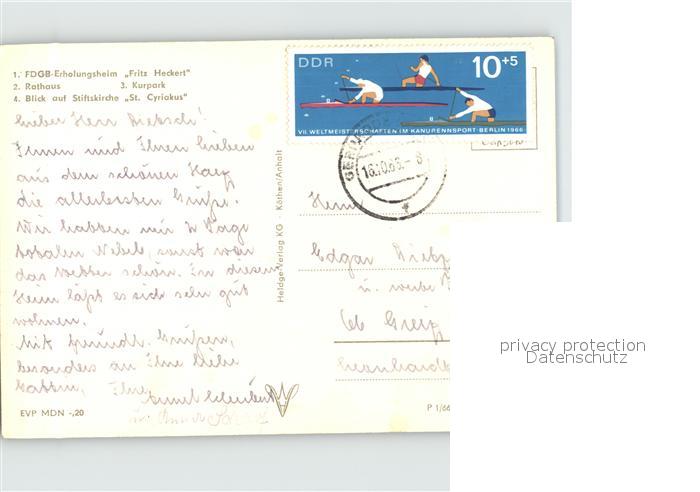 1. FDGB-Erholungsheim „Fritz Heckert"
2. Rathaus 3. Kurpark
4. Blick auf Stiftskirche „St. Cyriakus"
Lieber Herr
Ihnen und Ihren Lieben
aus dem schönen Harz
die allerbesten Grüße.
Wir habben nur 2 Tage
totalen Nebel, sonst war
das Wetter schön. In diesem
Heim läßt es sich sehr gut
wohnen.
Mit freundl. Grüßen,
besonders an Ihre liebe
Gattin, Ihre
EVP MDN -,20
Heldge-Verlag KG Köthen/Anhalt
DDR 10+5
VII. WELTMEISTERSCHAFTEN IM KANURENNSPORT · BERLIN 1966
Herrn
Edgar
u. werte
66 Greiz
P 1/66
privacy protection
Datenschutz